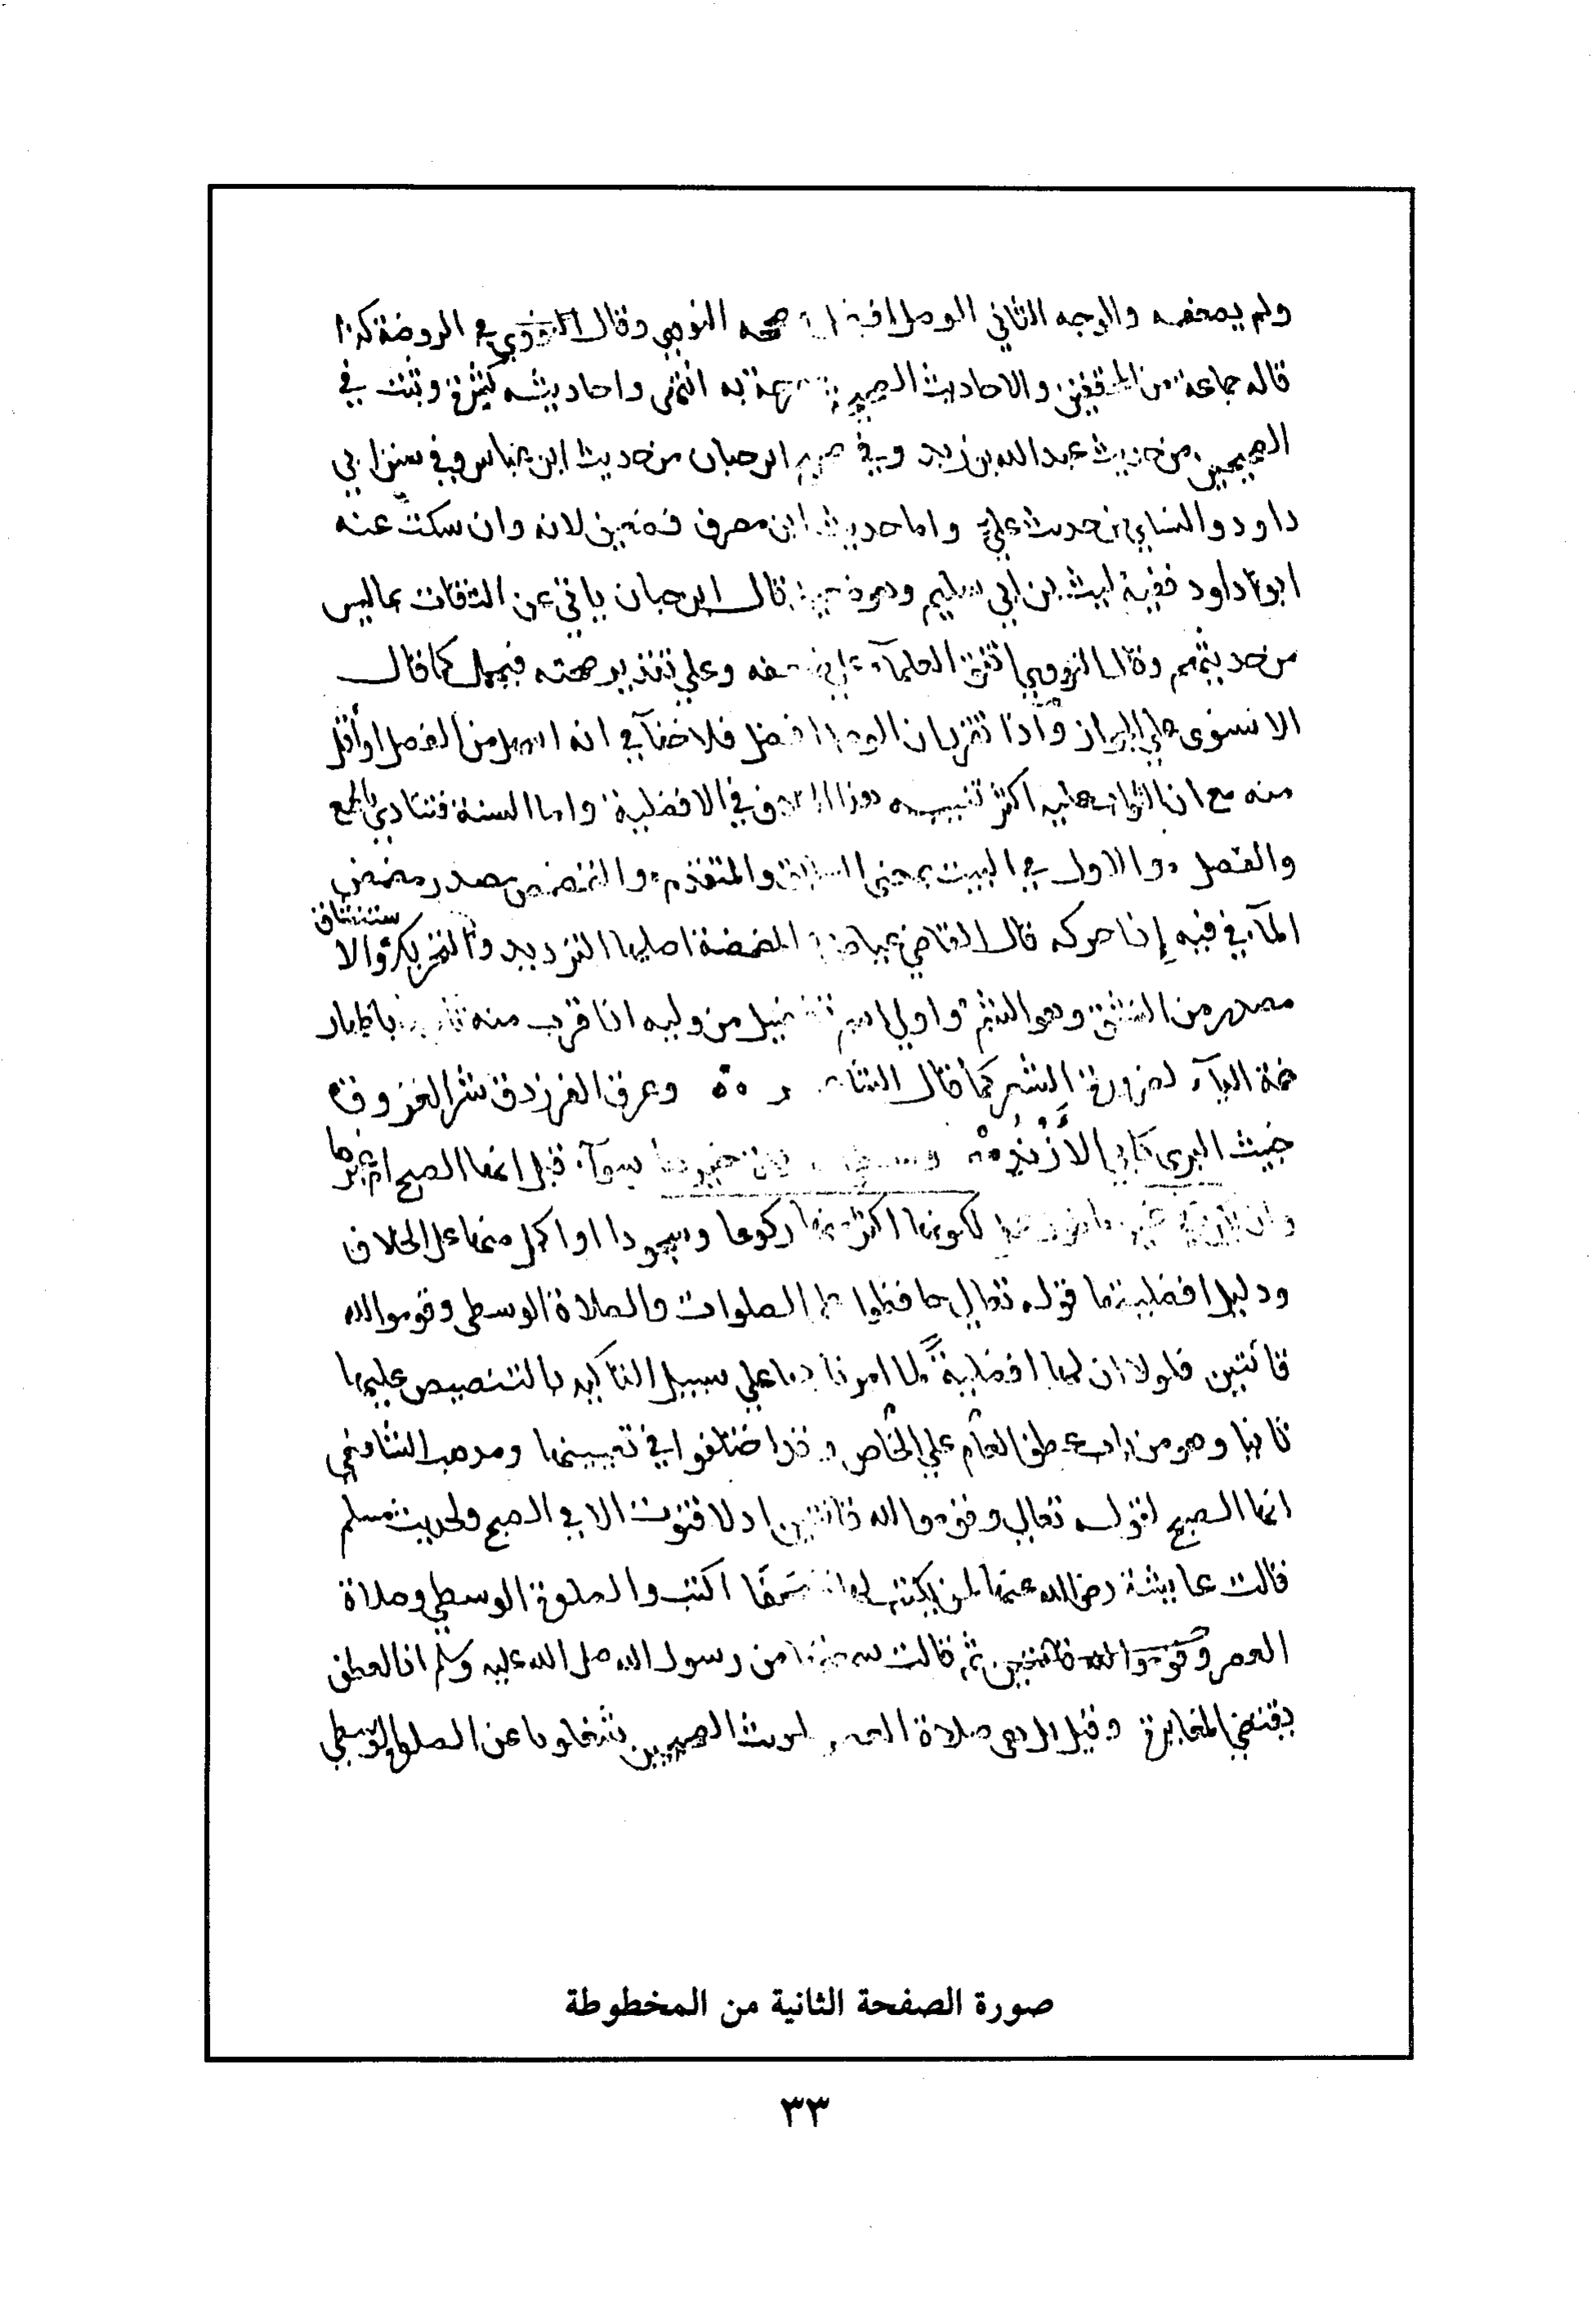 ولم يضعفه والوجه الثاني الوصل افضل صححه النووي وقال النووي في الروضة كذا
قاله جماعة من المحققين والاحاديث الصحيحة به انتهى واحاديثه كثيرة وثبت في
الصحيحين من حديث عبد الله بن زيد وفي ابن حبان من حديث ابن عباس وفي سنن ابي
داود والنساي من حديث علي واما حديث ابن مصرف فضعيف لانه وان سكت عنه
ابو داود ففيه ليث بن ابي سليم وهو ضعيف قال ابن حبان ياتي عن الثقات بما ليس
من حديثهم وقال النووي اتفق العلمآء علي ضعفه وعلي تقدير صحته فيحمل كما قال
الاسنوى على الجواز واذا تقرر ان الوصل افضل فلا خفآ في انه اسهل من الفصل او اقل
منه مع ان الثواب عليه اكثر تنبيه هذا الخلاف في الافضلية واما السنة فتتادي بالجمع
والفصل والاول في البيت بمعنى السابق والمتقدم والتمضمض مصدر مضمض
المآ في فيه إذا حركه قال القاضي عياض المضمضة اصلها الترديد والتحريك والاستنشاق
مصدر من النشق وهو الشم واولي اسم تفضيل من وليه اذا قرب منه باظهار
ضمة اليآء لضرورة الشعر كما قال الشاعر وعرق الفرزدق شر العروق
خبيث الثرى كابي الأَزْنُدِ سوآء قيل انها الصبح ام غيرها
لكونها اكثر منها ركوعا وسجودا او اكمل منها على الخلاف
ودليل افضليتها قوله تعالي حافظوا على الصلوات والصلاة الوسطى وقوموا لله
قانتين فلولا ان لها افضلية لما امرنا بها علي سبيل التاكيد بالتنصيص عليها
ثانيا وهو من باب عطف العام علي الخاص وقد اختلفوا في تعيينها ومذهب الشافعي
انها الصبح لقوله تعالي وقوموا لله قانتين اذ لا قنوت الا في الصبح ولحديث مسلم
قالت عايشة رضى الله عنها لمن يكتب لها مصحفا اكتب والصلوة الوسطي وصلاة
العصر وقوموا لله قانتين ثم قالت سمعتها من رسول الله صلى الله عليه وسلم اذ العطف
يقتضي المغايرة وقيل بل هي صلاة العصر لحديث الصحيحين شغلونا عن الصلاة الوسطي
صورة الصفحة الثانية من المخطوطة
٣٣